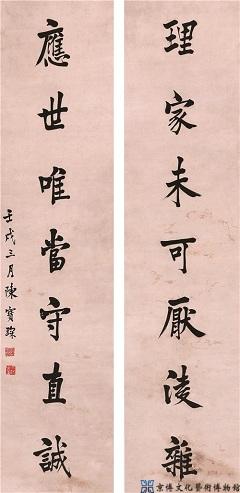 理家未可厭淩雜
應世唯當守直誠
壬戌三月陳寶琛
京博文化藝術博物館